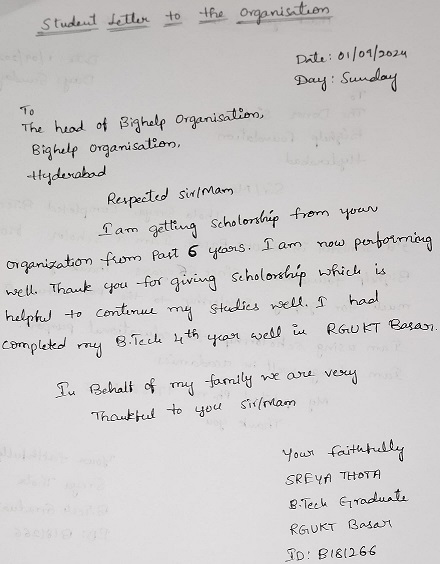 Student Letter to the Organisation
Date: 01/09/2024
Day: Sunday
To
The head of Bighelp Organisation,
Bighelp Organisation,
Hyderabad
Respected Sir/Mam
I am getting scholorship from your
organization from Past 6 years. I am now performing
well. Thank you for giving scholorship which is
helpful to continue my studies well. I had
completed my B.Tech 4th year well in RGUKT Basar.
In Behalf of my family we are very
Thankful to you sir/mam
Your faithfully
SREYA THOTA
B.Tech Graduate
RGUKT Basar
ID: B181266